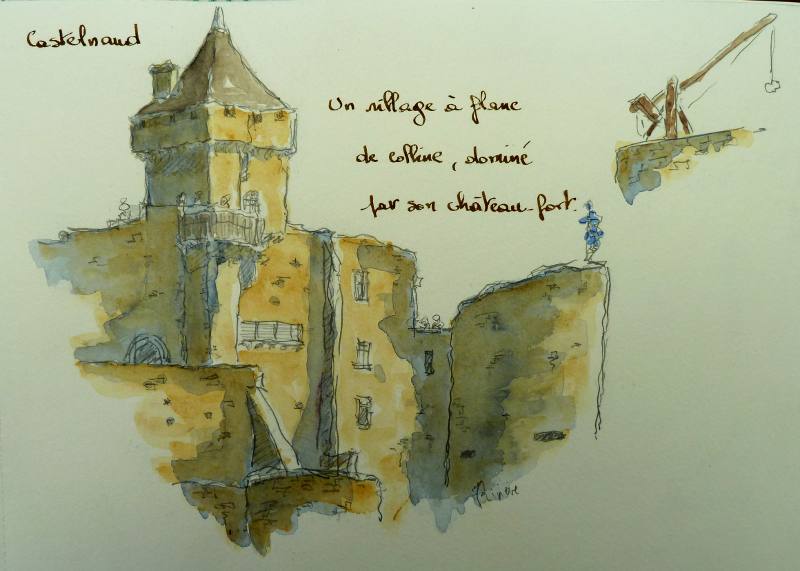 Castelnaud
Un village à flanc
de colline, dominé
par son château-fort.